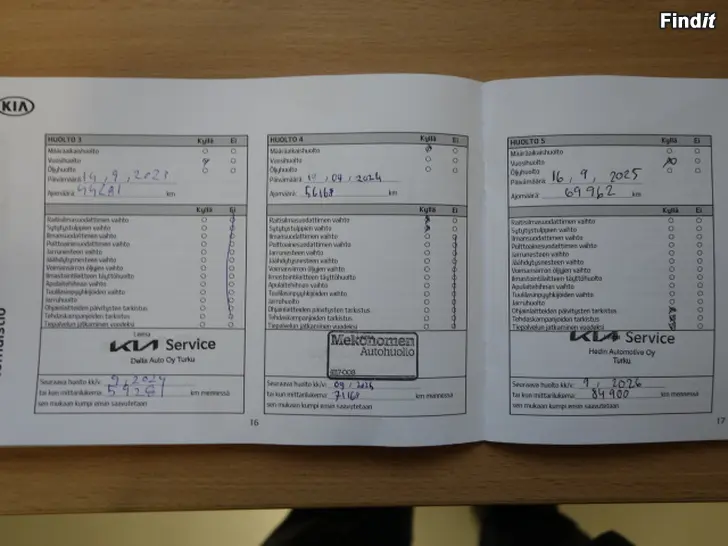 Findit
KIA
HUOLTO 3 Kyllä Ei
Määräaikaishuolto
Vuosihuolto
Öljyhuolto
Päivämäärä: 14, 9, 2023
Ajomäärä: km
Kyllä Ei
Raitisilmasuodattimen vaihto
Sytytystulppien vaihto
Ilmansuodattimen vaihto
Polttoainesuodattimen vaihto
Jarrunesteen vaihto
Jäähdytysnesteen vaihto
Voimansiirron öljyjen vaihto
Ilmastointilaitteen täyttöhuolto
Apulaitehihnan vaihto
Tuulilasinpyyhkijöiden vaihto
Jarruhuolto
Ohjainlaitteiden päivitysten tarkistus
Tehdaskampanjoiden tarkistus
Tiepalvelun jatkaminen vuodeksi
Leima
KIA Service
Delta Auto Oy Turku
Seuraava huolto kk/v: 9, 2024
tai kun mittarilukema: km mennessä
sen mukaan kumpi ensin saavutetaan
16
HUOLTO 4 Kyllä Ei
Määräaikaishuolto
Vuosihuolto
Öljyhuolto
Päivämäärä: 09, 2024
Ajomäärä: 56168 km
Kyllä Ei
Raitisilmasuodattimen vaihto
Sytytystulppien vaihto
Ilmansuodattimen vaihto
Polttoainesuodattimen vaihto
Jarrunesteen vaihto
Jäähdytysnesteen vaihto
Voimansiirron öljyjen vaihto
Ilmastointilaitteen täyttöhuolto
Apulaitehihnan vaihto
Tuulilasinpyyhkijöiden vaihto
Jarruhuolto
Ohjainlaitteiden päivitysten tarkistus
Tehdaskampanjoiden tarkistus
Tiepalvelun jatkaminen vuodeksi
Mekonomen
Autohuolto
Seuraava huolto kk/v:
tai kun mittarilukema: 71168 km mennessä
sen mukaan kumpi ensin saavutetaan
HUOLTO 5 Kyllä Ei
Määräaikaishuolto
Vuosihuolto
Öljyhuolto
Päivämäärä: 16, 9, 2025
Ajomäärä: 69962 km
Kyllä Ei
Raitisilmasuodattimen vaihto
Sytytystulppien vaihto
Ilmansuodattimen vaihto
Polttoainesuodattimen vaihto
Jarrunesteen vaihto
Jäähdytysnesteen vaihto
Voimansiirron öljyjen vaihto
Ilmastointilaitteen täyttöhuolto
Apulaitehihnan vaihto
Tuulilasinpyyhkijöiden vaihto
Jarruhuolto
Ohjainlaitteiden päivitysten tarkistus
Tehdaskampanjoiden tarkistus
Tiepalvelun jatkaminen vuodeksi
KIA Service
Hedin Automotive Oy
Turku
Seuraava huolto kk/v: 9, 2026
tai kun mittarilukema: 84900 km mennessä
sen mukaan kumpi ensin saavutetaan
17